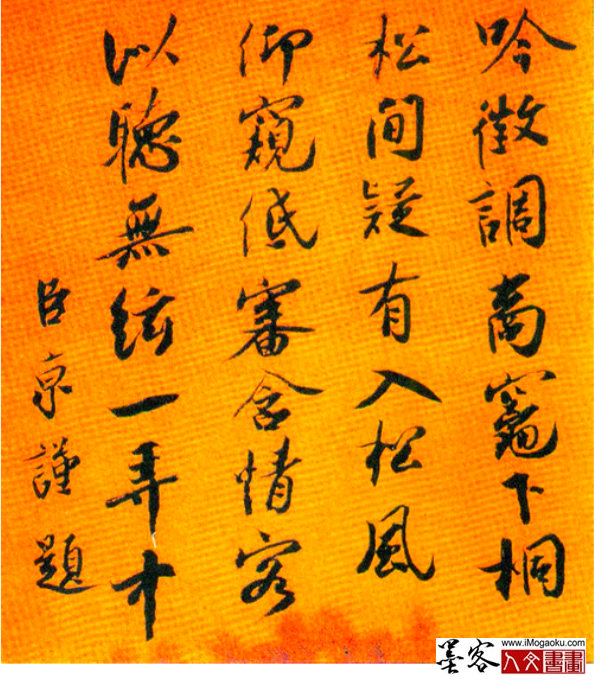 吟徵調商竈下桐
松間疑有入松風
仰窺低審含情客
以聽無絃一弄中
臣京謹題
墨客
www.iMogaoku.com
人文書畫